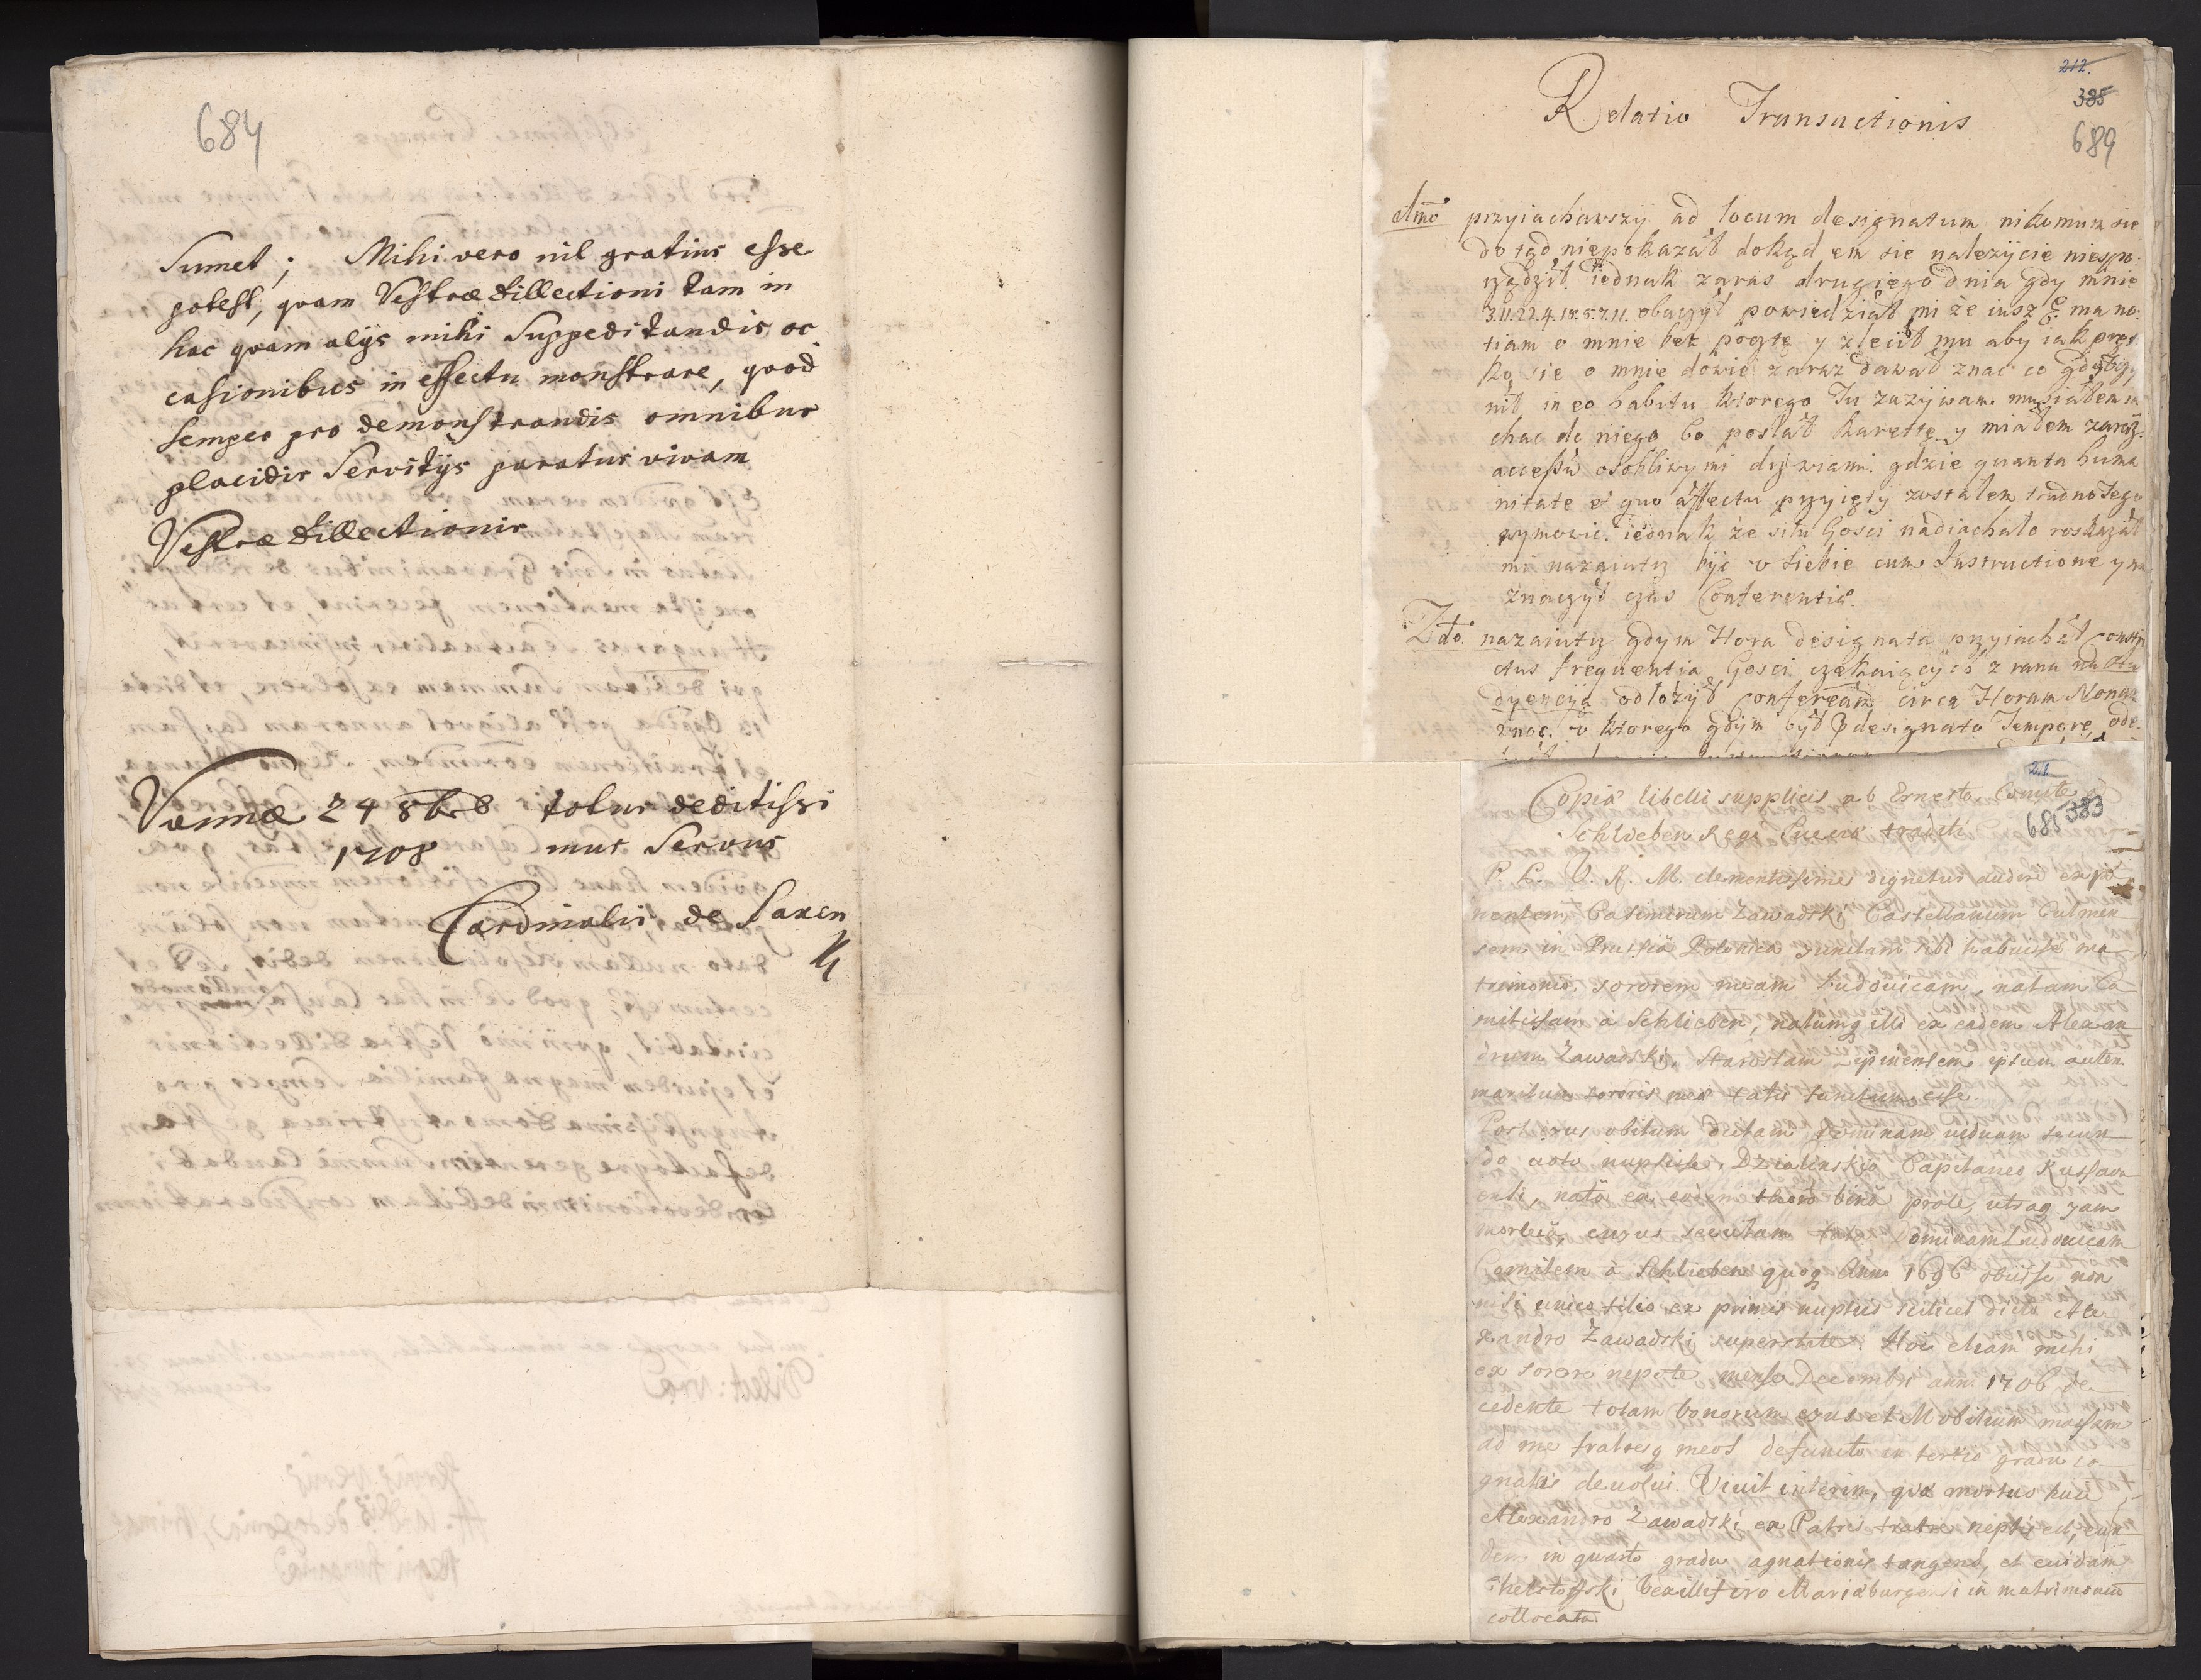 684
Sumet; Mihi vero nil gratius esse
potest, quam Vestrae Dillectioni tam in
hac quam alijs mihi Suppeditandis oc
casionibus in effectu monstrare, quod
semper pro demonstrandis omnibus
placidis Servitijs paratus vivam
Vestrae Dillectionis
Viennae 24 8br totus deditissi
1708 mus Servus
Cardinalis de Saxen
212.
385
689
Relatio Transactionis
przyiachawszÿ ad locum designatum nikomum sie
do tąd niepokazał dokąd em sie należÿcie niespo-
rządził. iednak zaras drugiego dnia gdy mnie
obaczÿł powiedział mi że insze ma no
tiam o mnie bez pocztę y zlecił mu aby iak pręt
ko sie o mnie dowie zaraz dawał znac co gdy
nił, in eo habitu ktorego Tu zazÿwam musiałem ie
chac do niego bo posłał karettę y miałem zaraz
accessu osobliwymi drzwiami. gdzie quanta huma
nitate et quo affectu przyięty zostałem trudno tego
wymowic. iednak że siła Gosci nadiachało roskazał
mi nazaiutrz byc v siebie cum Instructione y na
znaczÿł czas Conferentiae.
2do. nazaiutrz gdym Hora designata przyiachał constri
ctus frequentia Gosci czekaiącÿch z rana na Au
dyencÿą odłożÿł conferentiam circa Horam Nonam
wnoc. v ktorego gdym był designato Tempore, ode
Copia libelli supplicis ab Ernesto Comite à
685 383
Schlieben Regi Sueciae traditi
P. P. V. R. M. clementissime dignetur audire expo
nentem Casimirum Zawadski Castellanum Culmen
sem in Prussia Polonica junctam sibi habuisse ma
trimonio sororem meam Ludovicam, natam Co
mitissam à Schlieben, natumq illi ex eadem Alexan
drum Zawadski, Starostam Lipinensem ipsum autem
maritum sororis meae fatis functum esse.
Post ejus obitum dictam Dominam viduam secun
do voto nupsisse Dzialinskio Capitaneo
ensi, natâ ex eodem thoro binâ prole, utraq jam
mortuâ, Dominam Ludovicam
Comitem à Schlieben quoq Anno 1696 obiisse non
nisi unico filio ex primis nuptiis scilicet dicto Ale
xandro Zawadski superstite. Hoc etiam mihi
ex sorore nepote mense Decembri anni 1706 de
cedente totam bonorum ejus et Mobilium massam
ad me fratresq meos defuncto in tertio gradu co
gnatos devolvi. Vivit interim, quae mortuo huic
Alexandro Zawadski ex Patris fratre neptis est, eun
dem in quarto gradu agnationis tangens, et cuidam
Chelstoffski Vexillifero Mariaeburgensi in matrimonio
collocata